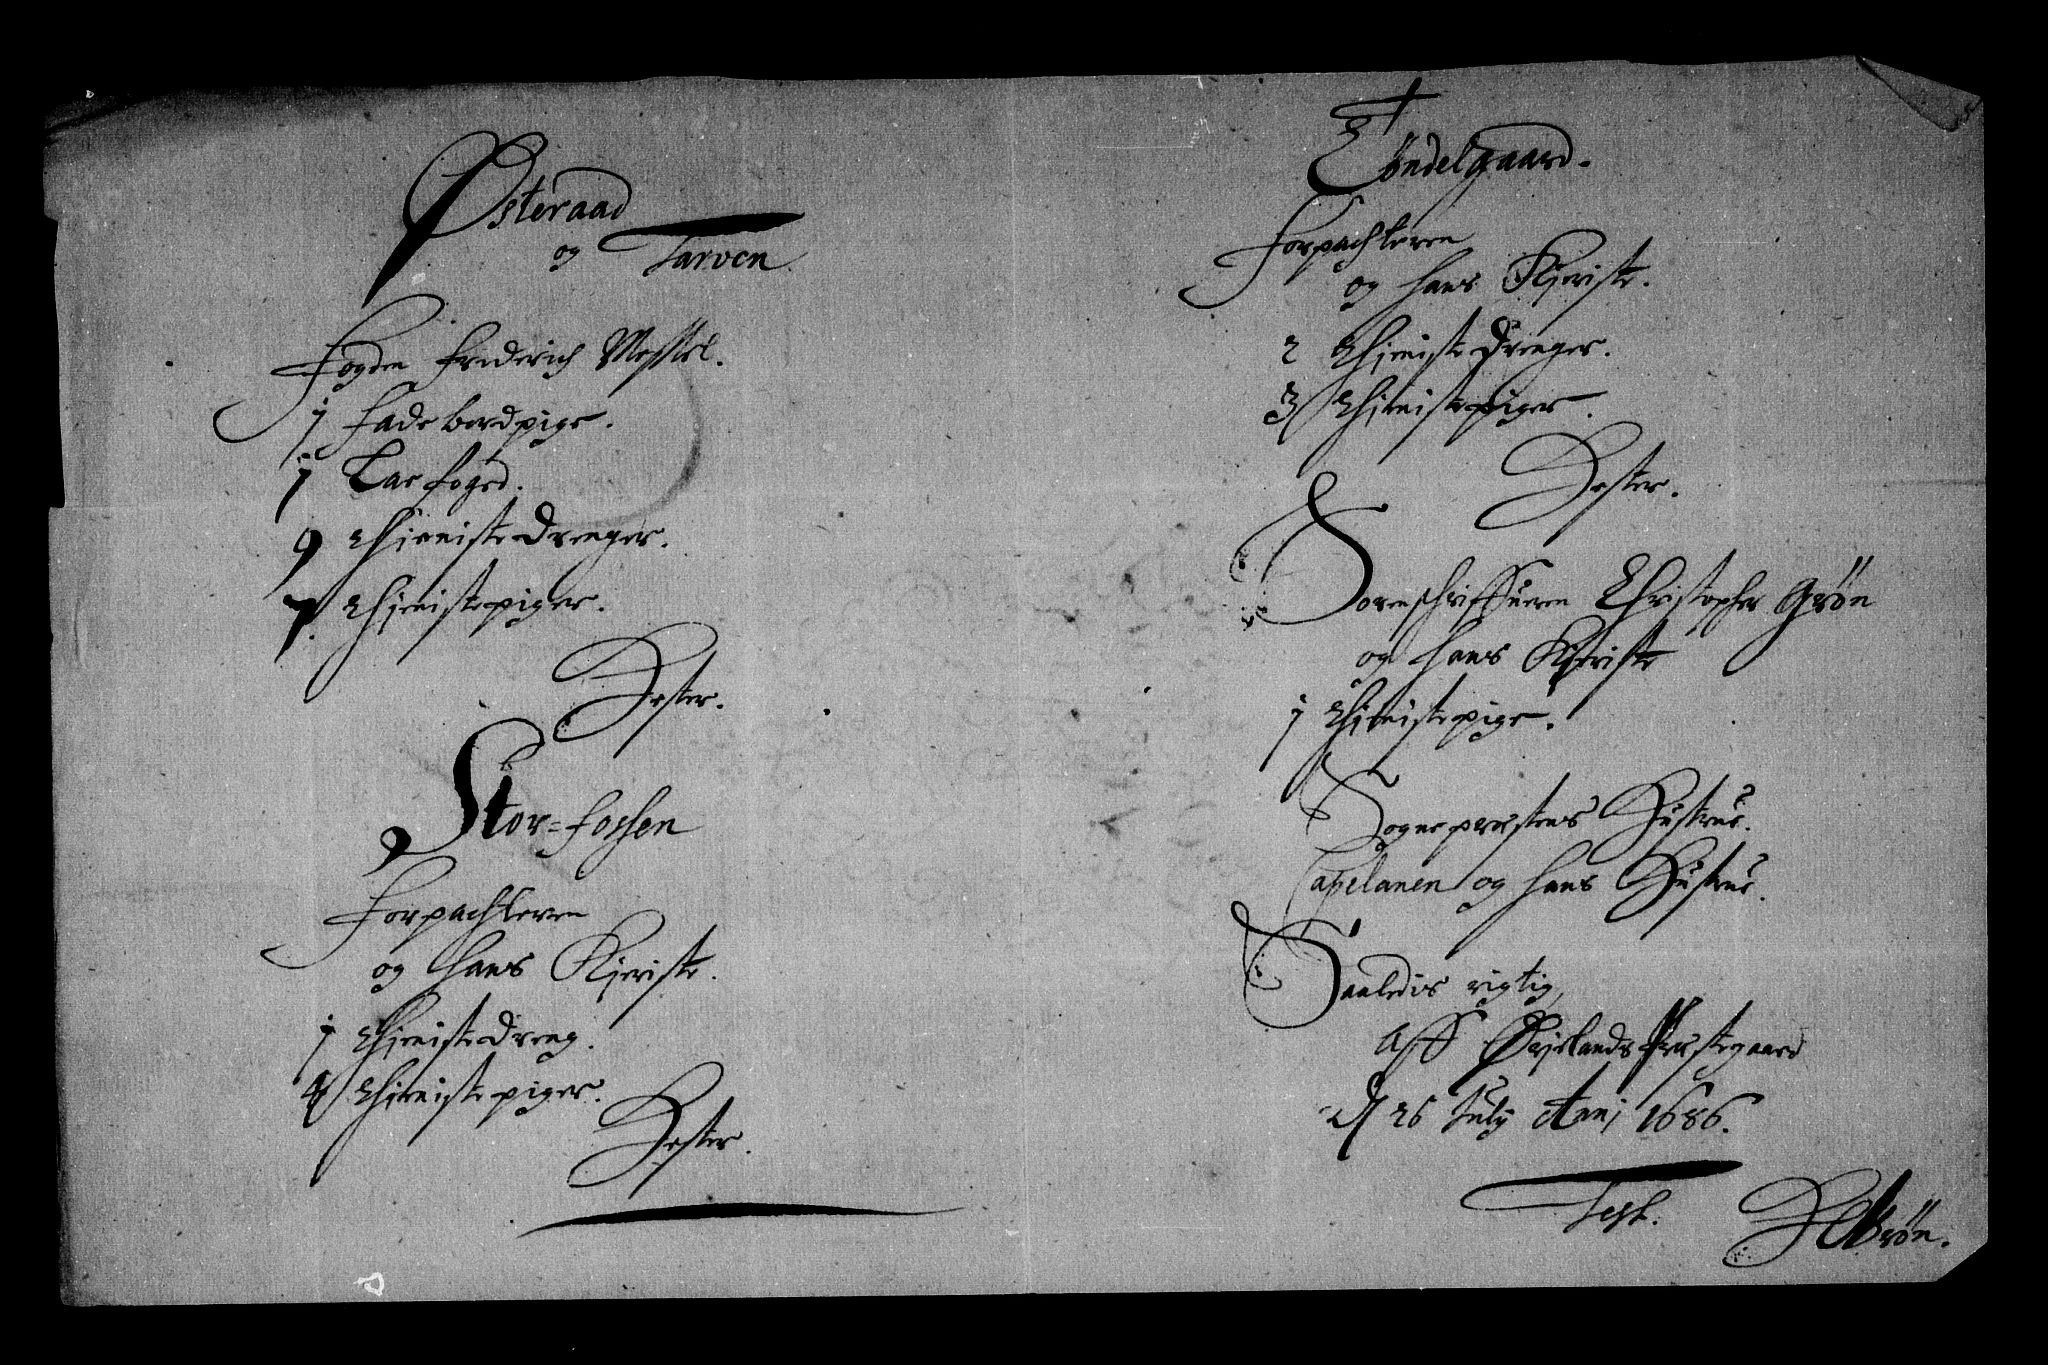 Østeraad
og Tarven
Fogden Friderich Mechtel.
1 Fadebordpige.
1 Larfoged.
9 thienistedrenger.
7. thienistepiger.
Hester.
Stor=fossen
Forpachteren
og hans Kieriste.
1 thienistedreng.
4 thienistepiger.
Hester.
Tøndelgaard.
Forpachteren
og hans Kieriste.
2 thienistedrenger.
3 thienistepiger.
Hester.
Sorenschriffueren Christopher Grøn
og hans Kieriste
1 thienistepige.
Sogneprestens Hustrue.
Capelanen og hans Hustrue.
Saaledis rigtig,
Aff Ørjelands Prestegaard
d 26 July Anni 1686.
Test.
Grøn.